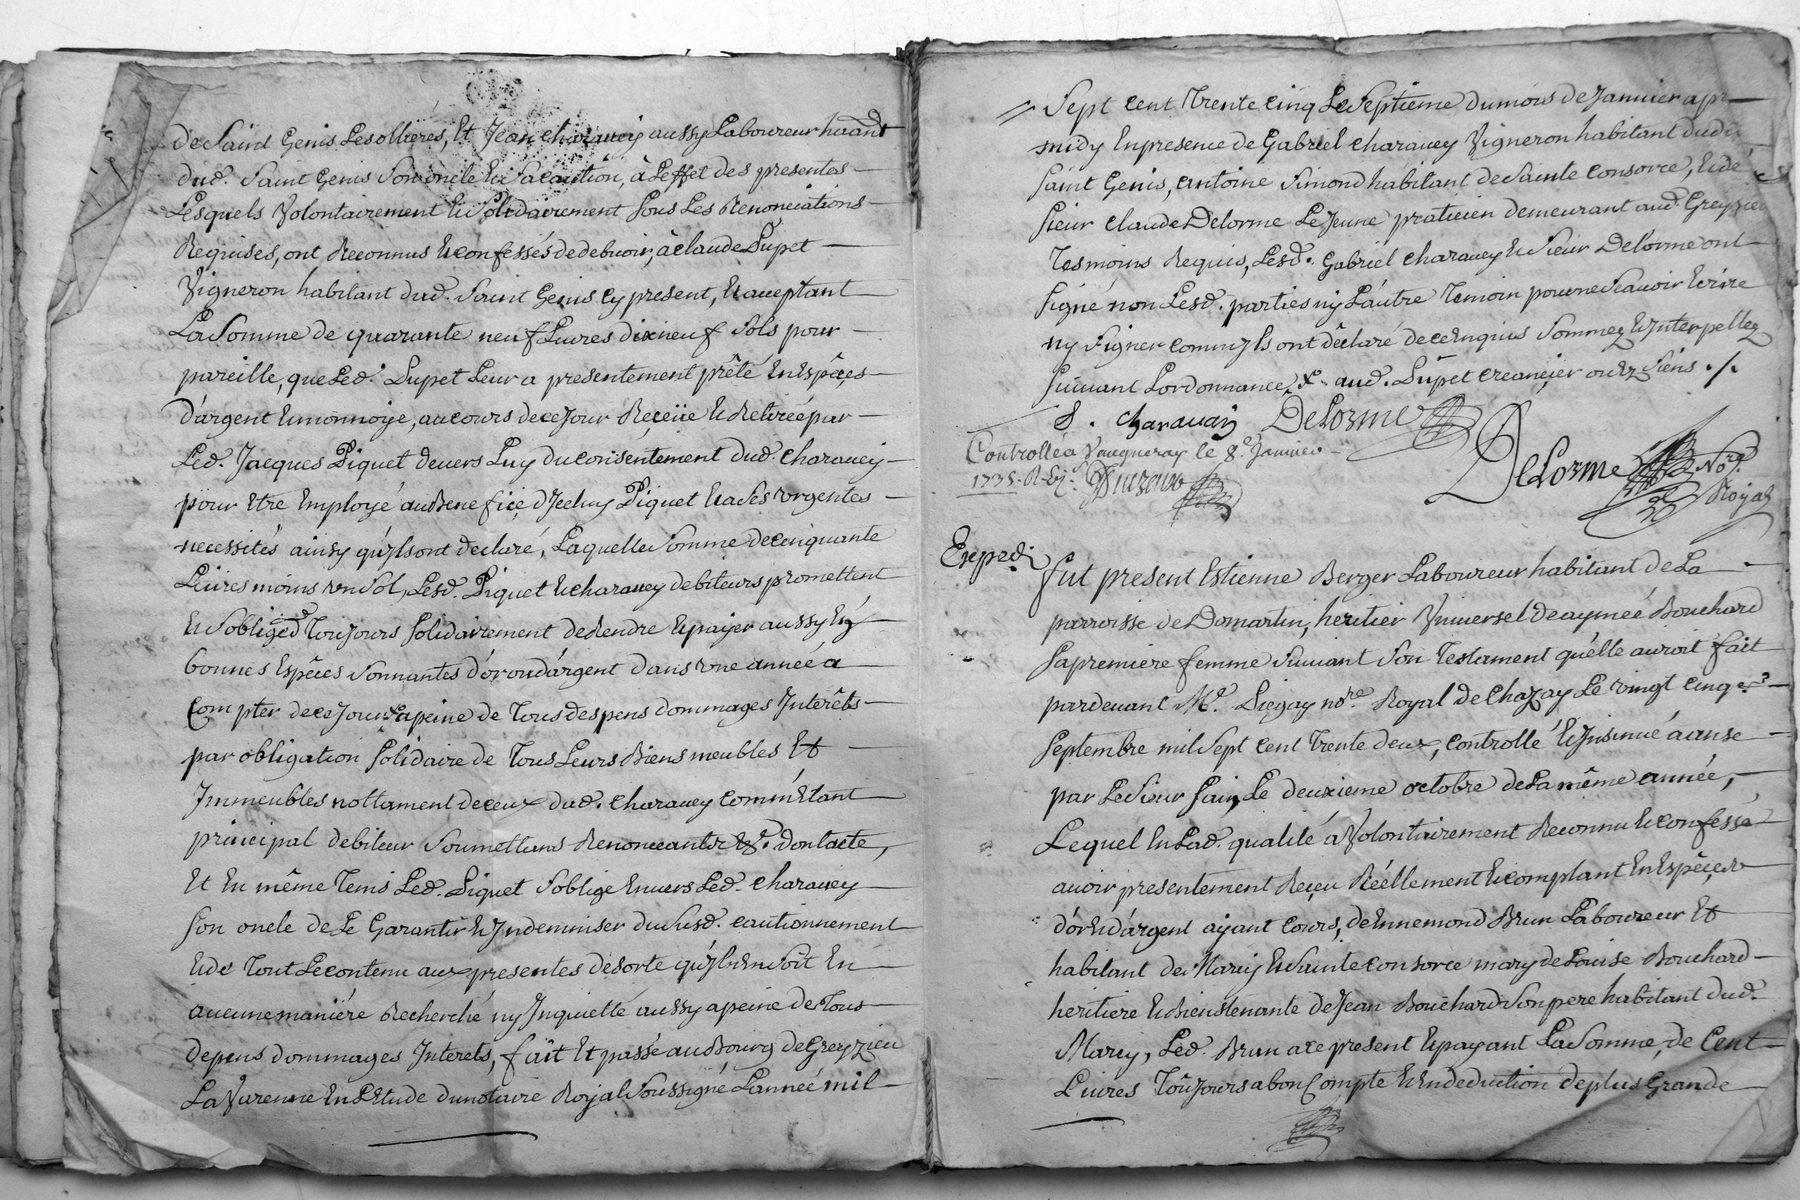 de Saint Genis Lesollieres, Et Jean charavey aussy Laboureur hitand
dud. Saint Genis Son oncle Et Sa caution, à Leffet des presentes
Lesquels Volontairement Et Solidairement Sous Les Renonciations
Requises, ont Reconnus Et confessés de debvoir, à claude Dupet
Vigneron habitant dud. Saint Genis Cy present, Et acceptant
La Somme de quarante neuf Livres dixneuf Sols pour
pareille, que Led. Dupet Leur a presentement prêté En Espêces
D'argent Et monnoye, au cours de ce Jour Reçeüe Et Retirée par
Led. Jacques Piquet devers Luy du consentement dud. Charavey
pour Etre Employé au Benefice d'Jceluy Piquet Et a Ses vrgentes
necessités ainsy qu'jls ont declaré, Laquelle Somme de cinquante
Livres moins vn Sol, Lesd. Piquet Et charavey debiteurs promettent
Et Sobligent Toujours Solidairement de Rendre Et payer aussy En
bonnes Espêces Sonnantes d'or ou d'argent dans vne année a
Compter de ce Jour a peine de Tous despens dommages Interêts
par obligation Solidaire de Tous Leurs Biens meubles Et
Jmmeubles nottament de ceux dud. charavey comm' Etant
principal debiteur Soumettans Renonceants &ª. dont acte,
Et En même Tems Led. Piquet Soblige Envers Led. charavey
Son oncle de Le Garantir Et Jndemniser du Susd. cautionnement
Et de Tout Le contenu aux presentes de sorte qu'jl n'En Soit En
aucune maniére Recherché ny Jnquietté aussy a peine de Tous
depens dommages Interets, fait Et passé au Bourg de Grezzieu
La Varenne En L'Etude du notaire Royal Soussigné L'année mil
Sept cent Trente cinq Le Septieme du mois de Janvier apr
midy En presence de Gabriel charavey Vigneron habitant dud
Saint Genis, antoine Simond habitant de Sainte Consorce, Et de
Sieur claude Delorme Le Jeune praticien demeurant aud. Grezzieu
Tesmoins Requis, Lesd. Gabriel charavey Et Sieur Delorme ont
Signé non Lesd. parties ny L'autre Temoin pour ne Scavoir Ecrire
ny Signer comm' jls ont dêclaré de ce Enquis Sommez Et Jnterpellez
Suivant Lordonnance, aud. Dupet creancier ou Ez Siens ./.
G. charavay Delorme
Delorme Nore. Royal
Controllé a Vaugneray le 8e. Janvier
1735. R
Exped.
fut present Estienne Berger Laboureur habitant de La
parroisse de Domartin, heritier Vniversel de aymeé Bouchard
Sa premiere femme Suivant Son Testament qu'elle auroit fait
pardevant Me. Liegay nore. Royal de Chazay Le vingt cinq
Septembre mil Sept cent Trente deux, controllé Et Jnsinué a anse
par Le Sieur Sain, Le deuxieme octobre de La même année,
Lequel En Lad. qualité a Volontairement Reconnu Et confessé
avoir presentement Reçeu Réellement Et comptant En Espêces
d'or Et d'argent ayant cours, de Ennemond Brun Laboureur Et
habitant de Marcy Et Sainte Consorce mary de Louise Bouchard
heritiere Et Bienstenante de Jean Bouchard Son pere habitant dud.
Marcy, Led. Brun a ce present Et payant La Somme, de Cent
Livres Toûjours a bon Compte Et En deduction de plus Grande